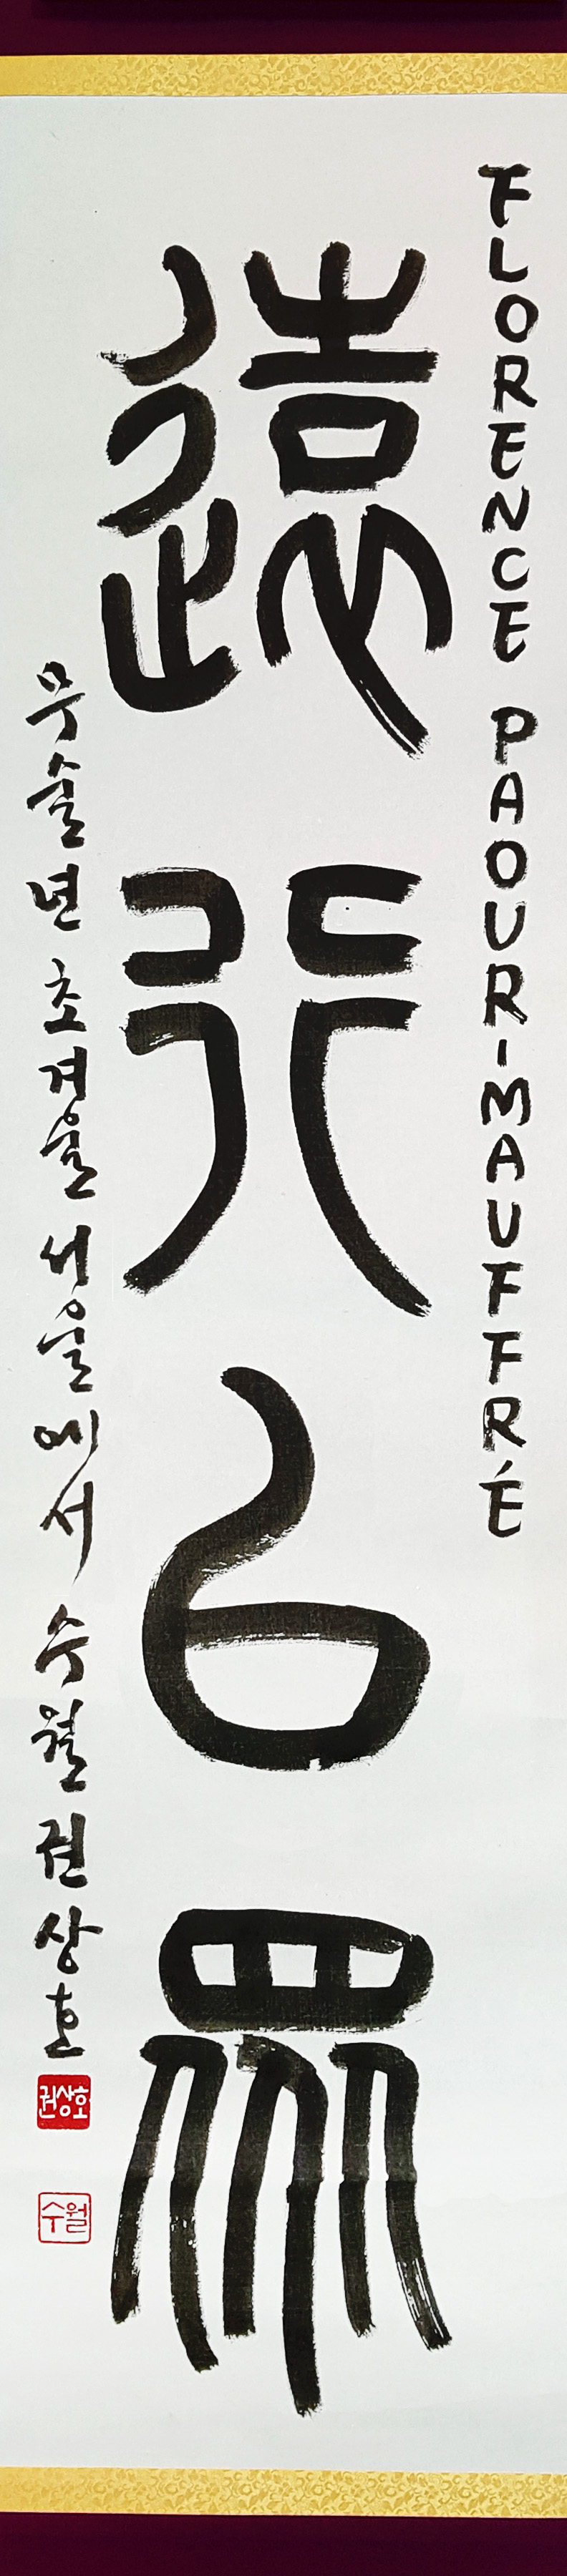 FLORENCE PAOURI-MAUFFRÉ
遠行以眾
무술년 초겨울 서울에서 수월 권상호
권상호
수월